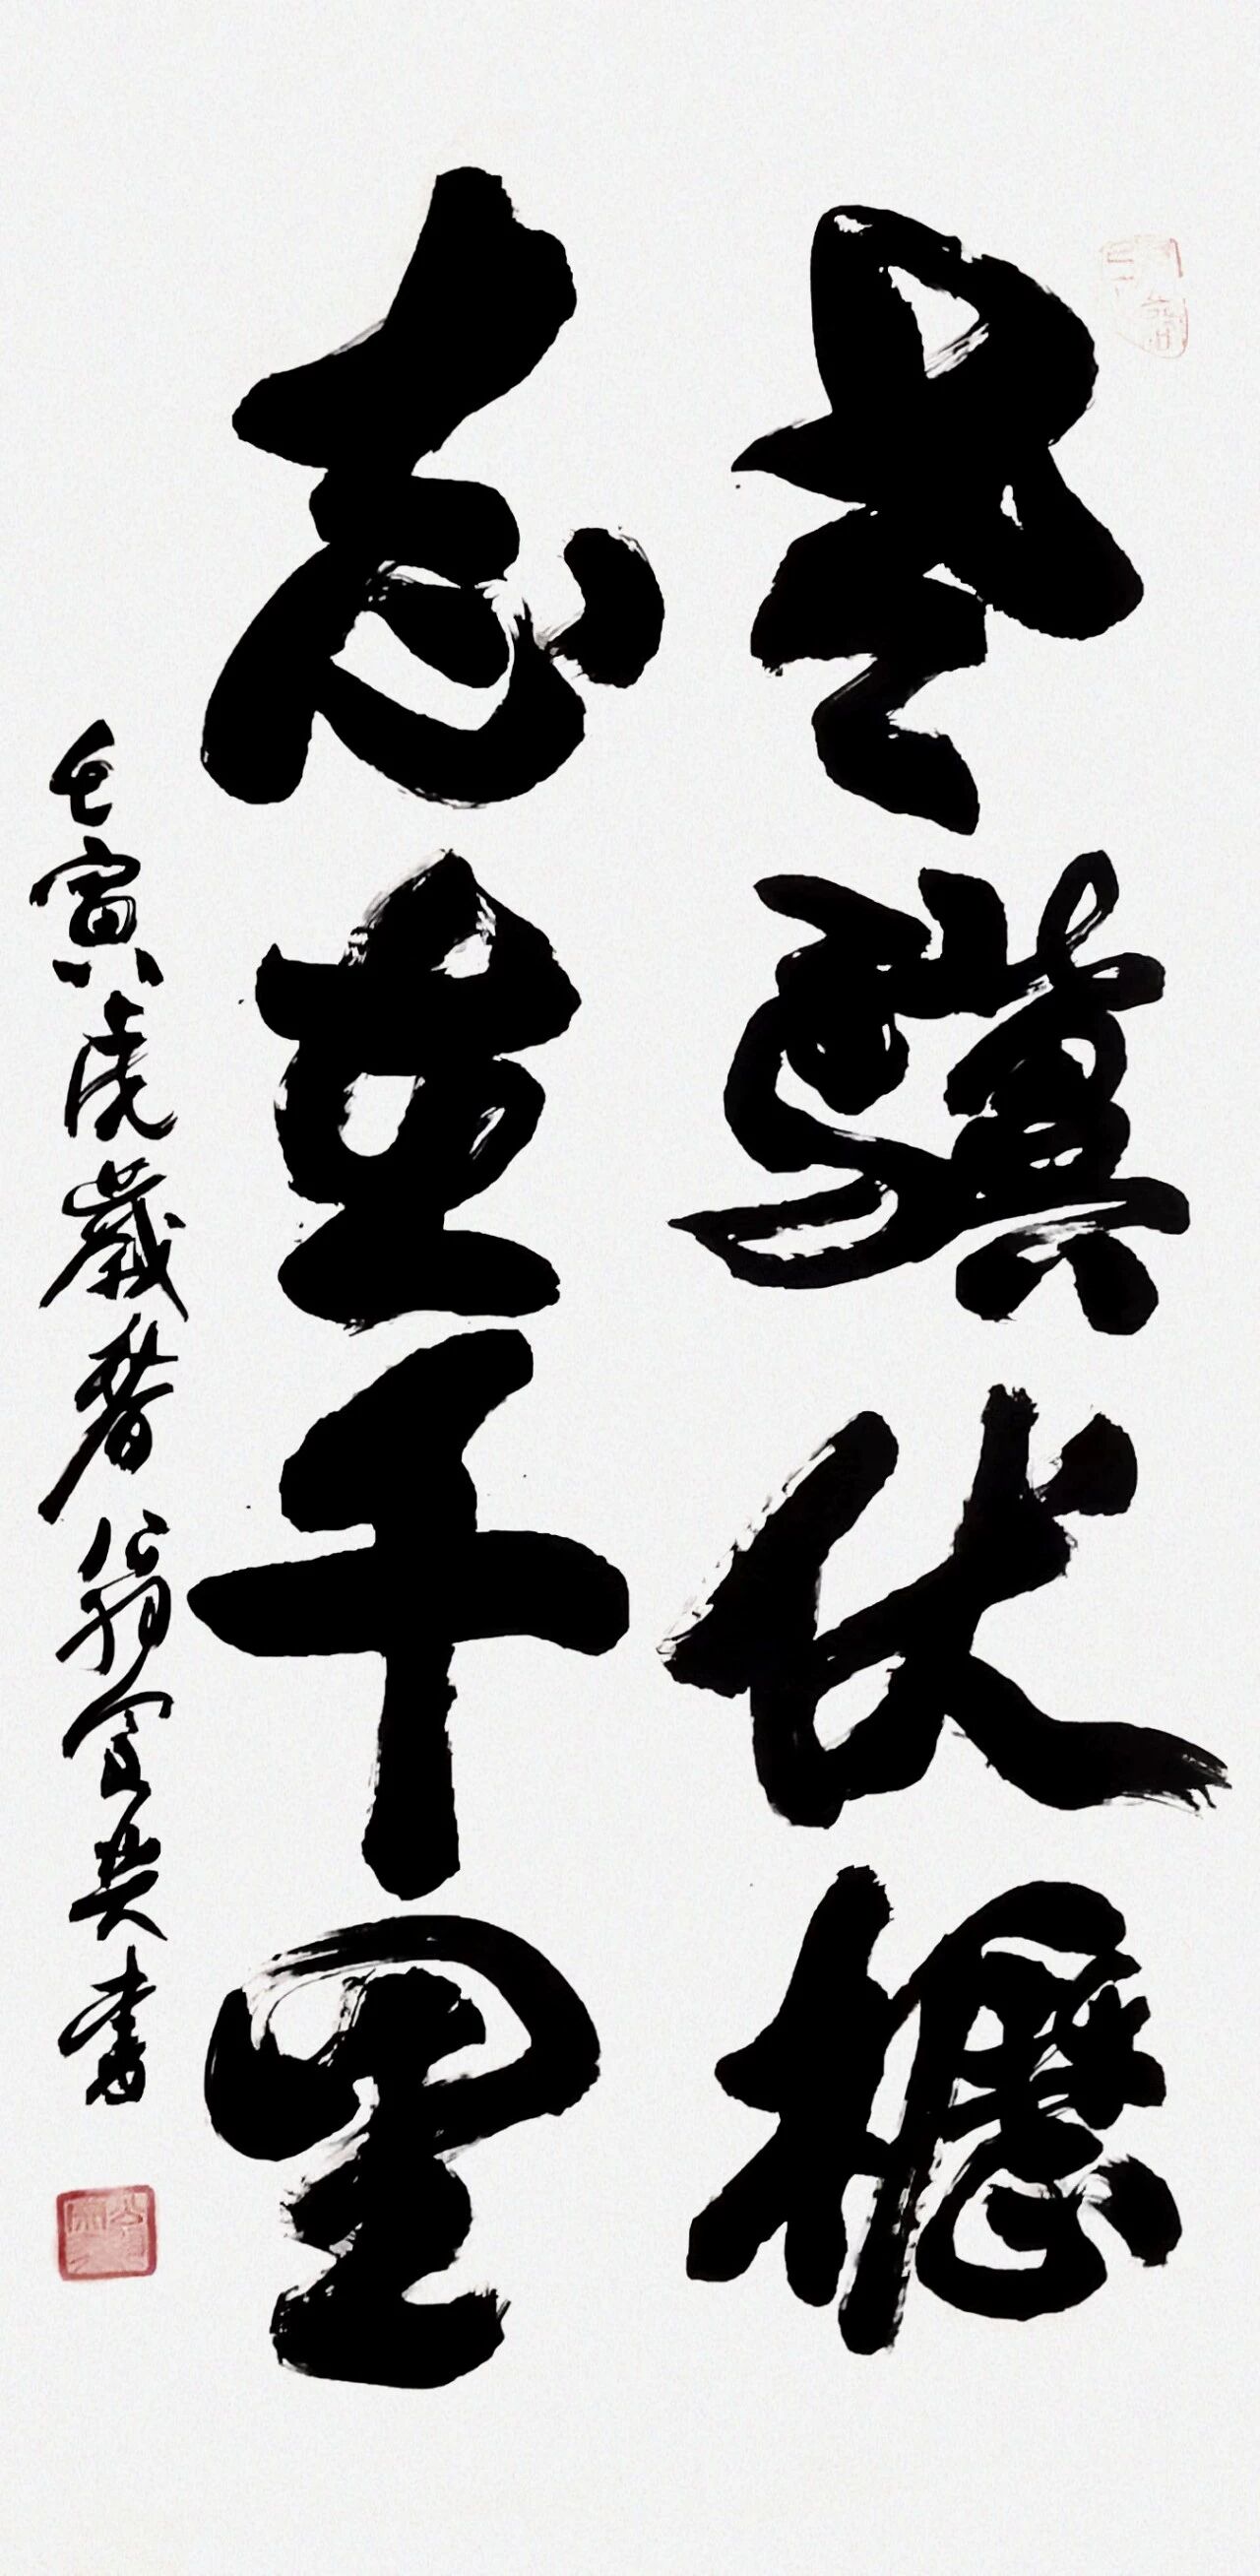 老驥伏櫪
志在千里
壬寅虎歲翁書